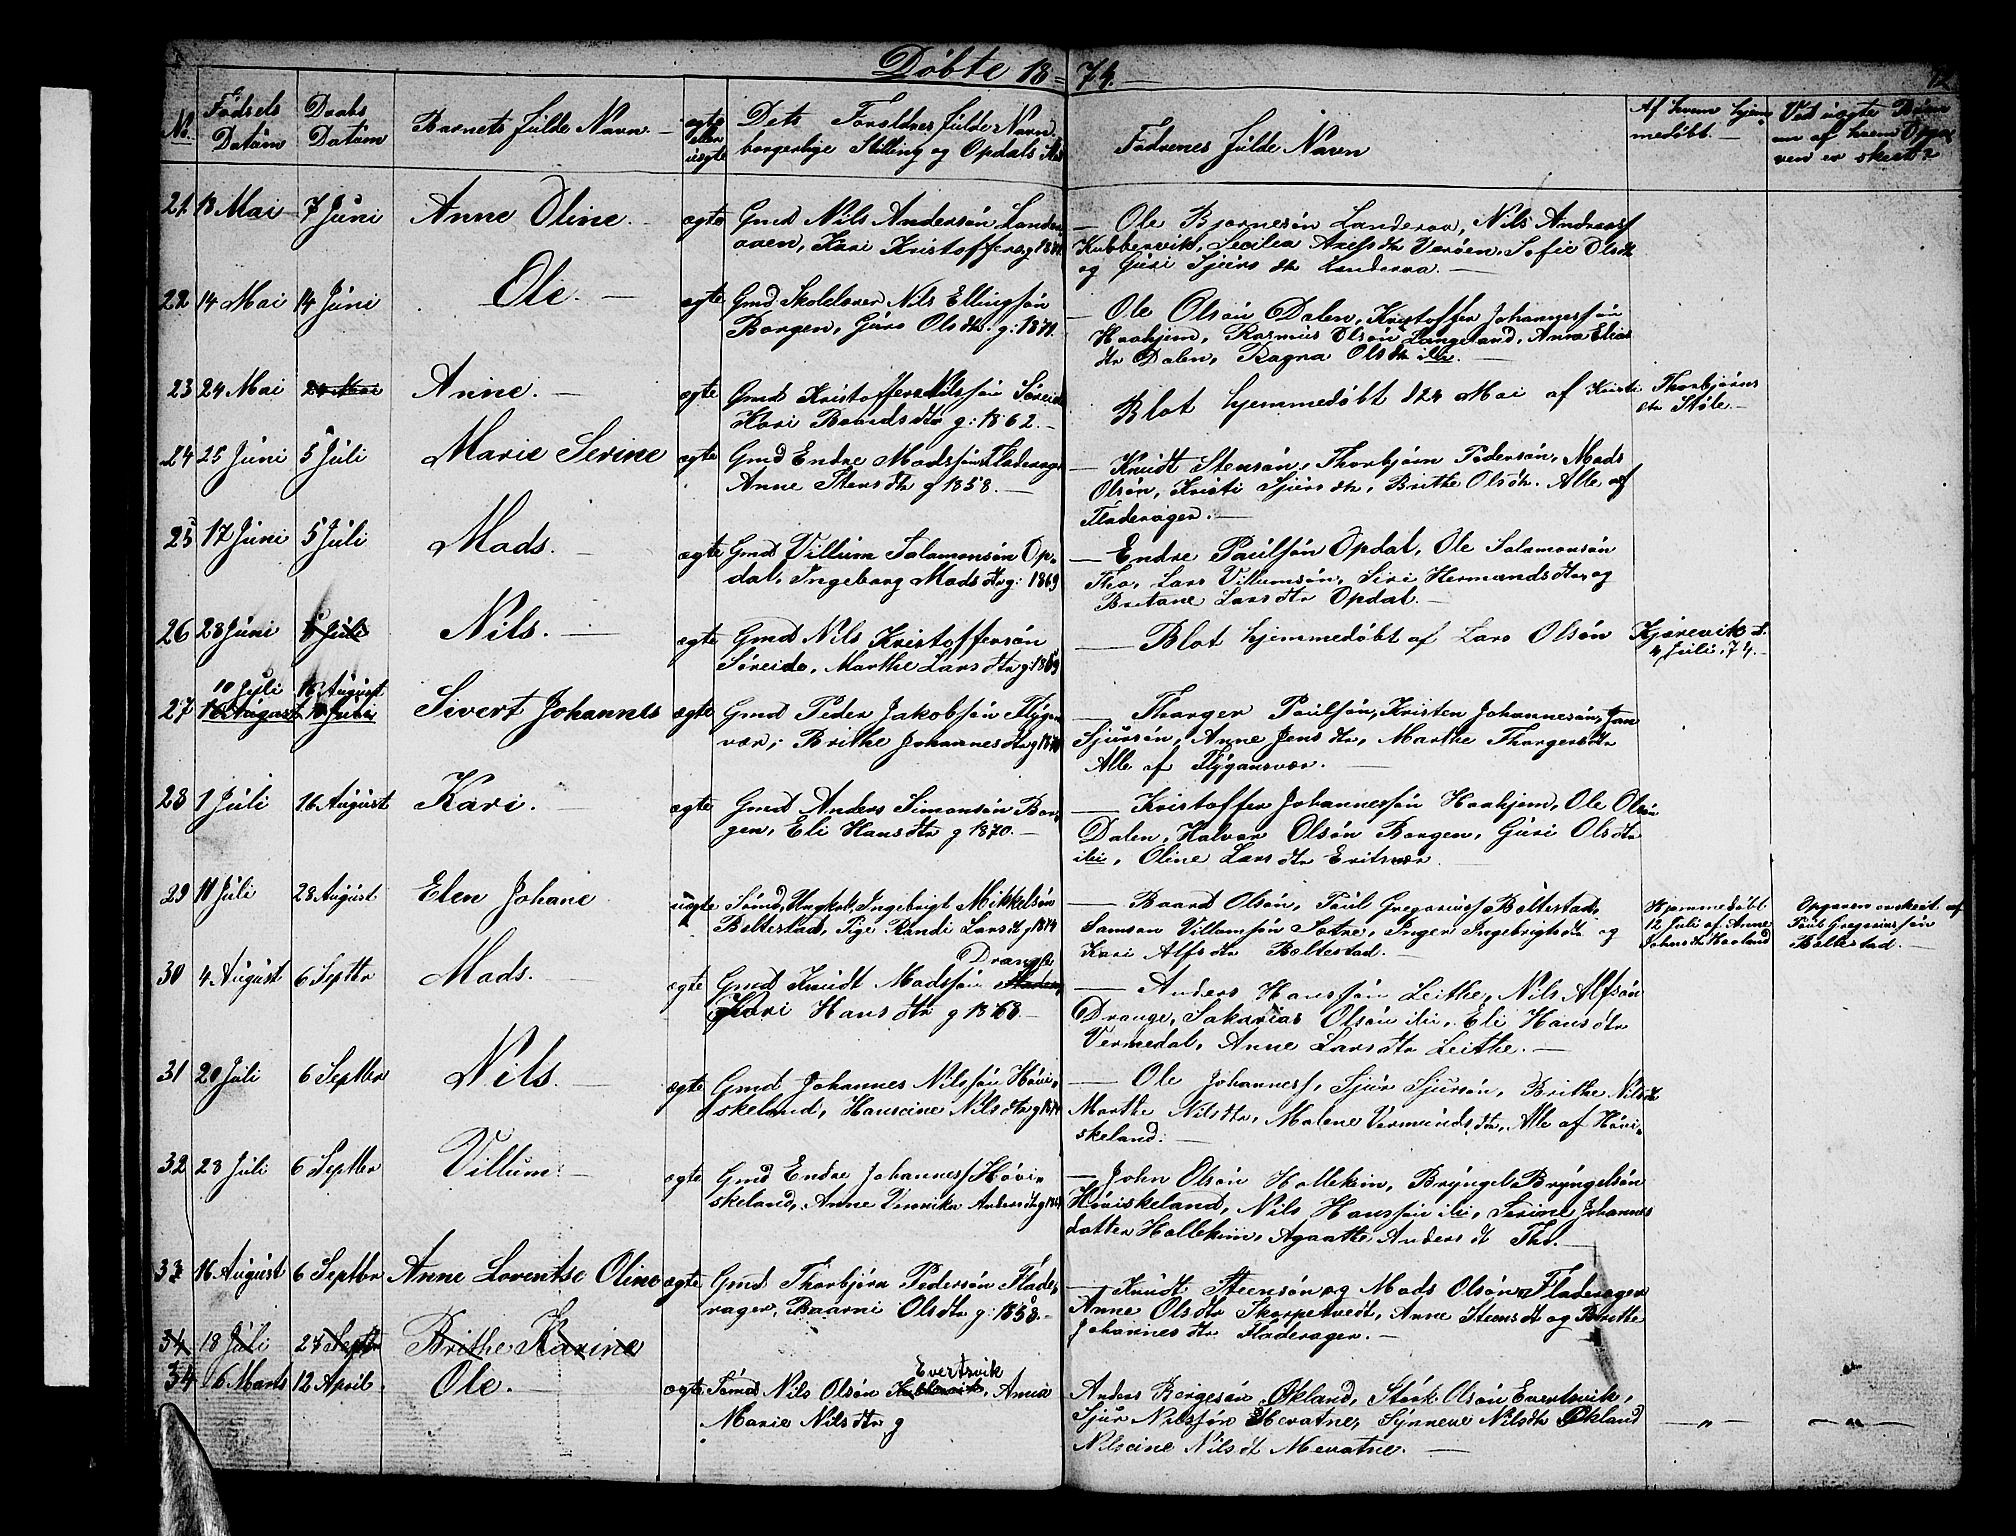 Døbte 1874.
No. Fødsels Datum Daabs Datum Barnets fulde Navn. ægte eller uægte Dets Forældres fulde Navn, borgerlige Stilling og Opdals
Fadrenes fulde Navn Af hvem hjemmedøbt. Ved uægte Børn om af hvem Opgaven er skeet?
21. 18 Mai 7 Juni Anne Oline. ægte Gmd Nils Andersøn Landeroaen, Kari Kristoffers g 18
Ole Bjørnesøn Landeroa, Nils Andreass
Kubbervik, Secilia Axelsdtr Varøen, Sofie Olsdtr
og Guri Sjursdtr Landeroa.
22 14 Mai 14 Juni Ole. ægte Gmd Skolelærer Nils Ellingsøn
Borgen, Guro Olsdtr. g: 1871.
Ole Olsøn Dalen, Kristoffer Johannessøn
Haahjem, Rasmus Olsøn Langeland, Anna Elias
dtr Dalen, Ragna Olsdtr ibi.
23 24 Mai 24 Mai Anne. ægte Gmd Kristoffer Nilssøn Søreide
Kari Baardsdtr g: 1862.
Blot hjemmedøbt d 24 Mai af Kristi Thorbjørns
dtr Støle.
24 25 Juni 5 Juli Marie Serine ægte Gmd Endre Madssøn Fladerager
Anne Stensdtr g 1858.
Knudt Stensøn, Thorbjørn Pedersøn, Mads
Olsøn, Kristi Sjursdtr, Brithe Olsdtr. Alle af
Fladerager.
25 17 Juni 5 Juli Mads. ægte Gmd Villum Salamonsøn Opdal, Ingeborg Madsdtr g: 1869
Endre Paulsøn Opdal, Ole Salamonsøn
Tho, Lars Villumsøn, Siri Hermandsdtr og
Britane Larsdtr Opdal.
26 28 Juni 5 Juli Nils. ægte Gmd Nils Kristoffersøn
Søreide, Marthe Larsdtr g: 1869
Blot hjemmedøbt af Lars Olsøn Kjørevik d.
4 Juli, 74.
10 Juli 16 August
27 16 August 10 Juli Sivert Johannes ægte Gmd Peder Jakobsøn Flygansvær, Brithe Johannesdtr g 18
Thorger Paulsøn, Kristen Johannesøn, Jan
Sjursøn, Anne Jensdtr, Marthe Thorgersdtr
Alle af Flygansvær.
28 1 Juli 16 August Kari. ægte Gmd Anders Simonsøn Borgen, Eli Hansdtr g 1870.
Kristoffer Johannessøn Haahjem, Ole Olsøn
Dalen, Halvor Olsøn Borgen, Guri Olsdtr
ibi, Oline Larsdtr Eritsvær.
29 11 Juli 28 August Elen Johane uægte Sømd, Ungkal, Ingebrigt Mikkelsøn
Boltestad, Pige Randi Larsdt g 1814
Baard Olsøn, Paul Gregoriuss Boltestad,
Samson Villumsøn Sætre, Inger Ingebrigtsdtr og
Kari Alfsdtr Boltestad.
Hjemmedøbt
12 Juli af Anne
Johnsdtr Havland
Opgaven er skeet af
Paul Gregoriussøn
Boltestad.
30 4 August 6 Septbr Mads. ægte Gmd Knudt Madssøn Drange
Kari Hansdtr g 1868.
Anders Hanssøn Leithe, Nils Alfsøn
Drange, Sakarias Olsøn ibi, Eli Hansdtr
Vermedal, Anne Larsdtr Leithe.
31 20 Juli 6 Septbr Nils. ægte Gmd Johannes Nilssøn Høviskeland, Hanscine Nilsdtr g 1874
Ole Johanness, Sjur Sjursøn, Brithe Nilsdt
Marthe Nilsdtr, Malene Vermundsdtr, Alle af Høviskeland.
32 28 Juli 6 Septbr Villum. ægte Gmd Endre Johanness Høviskeland, Anne Veronika Andersdtr g 18
John Olsøn Hollekim, Bryngel Bryngelsøn
Høviskeland, Nils Hanssøn ibi, Serine Johannes
datter Hollekim, Agaathe Andersdt Tho.
33 16 August 6 Septbr Anne Lorentse Oline ægte Gmd Thorbjørn Pedersøn Fladerager, Baarni Olsdtr g: 1858.
Knudt Steensøn og Mads Olsøn Fladerager
Anne Olsdtr Skorpetvedt, Anne Steensdt og Brithe
Johannesdtr Fladerager.
34 18 Juli 27 Septbr Brithe Karine
34 16 Marts 12 April Ole. ægte Sømd Nils Olsøn Kubbervik Evertsvik, Anna
Marie Nilsdtr g
Anders Børgesøn Økland, Størk Olsøn Evertsvik,
Sjur Nilssøn Mevatne, Synneve Nilsdtr Økland
Nilscine Nilsdt Mevatne.